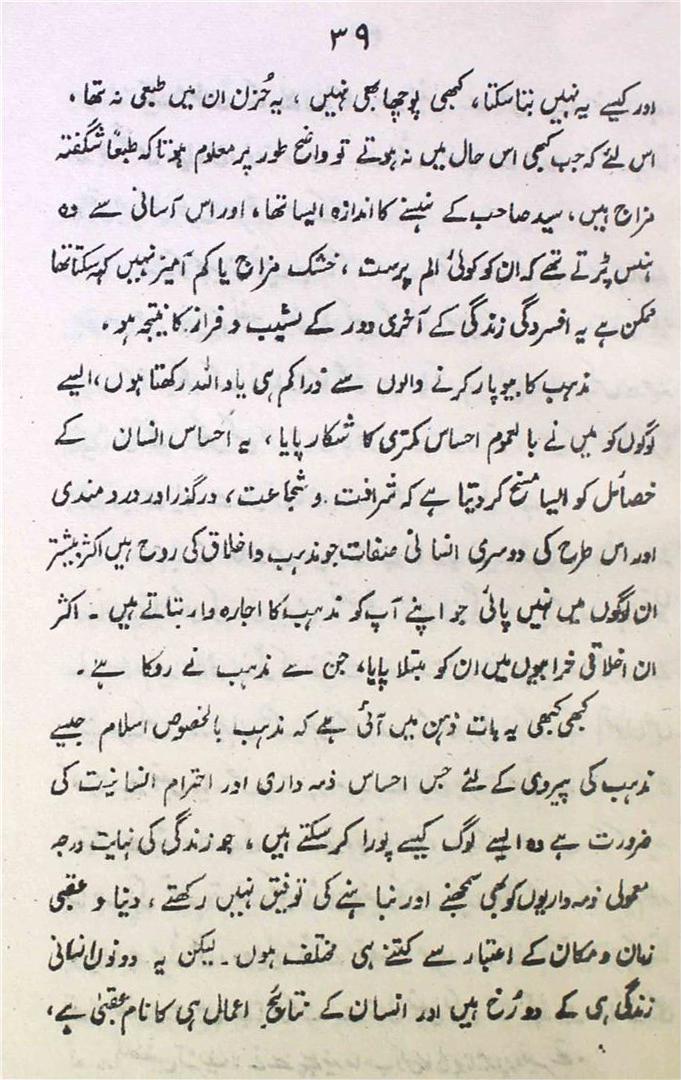 ۳۹
اور کیسے یہ نہیں بتا سکتا، کبھی پوچھا بھی نہیں، یہ حُزن ان میں طبعی نہ تھا،
اس لئے کہ جب کبھی اس حال میں نہ ہوتے تو واضح طور پر معلوم ہوتا کہ طبعاً شگفتہ
مزاج ہیں، سید صاحب کے ہنسنے کا اندازہ ایسا تھا، اور اس آسانی سے وہ
ہنس پڑتے تھے کہ ان کو کوئی الم پرست، خشک مزاج یا کم آمیز نہیں کہہ سکتا تھا
ممکن ہے یہ افسردگی زندگی کے آخری دور کے نشیب و فراز کا نتیجہ ہو،
مذہب کا بیوپار کرنے والوں سے ذرا کم ہی یاد اللہ رکھتا ہوں، ایسے
لوگوں کو میں نے بالعموم احساس کمتری کا شکار پایا، یہ احساس انسان کے
خصائل کو ایسا مسخ کر دیتا ہے کہ شرافت و شجاعت، درگذر اور دردمندی
اور اس طرح کی دوسری انسانی صفات جو مذہب و اخلاق کی روح ہیں اکثر بیشتر
ان لوگوں میں نہیں پائی جو اپنے آپ کو مذہب کا اجارہ دار بتاتے ہیں ۔ اکثر
ان اخلاقی خرابیوں میں ان کو مبتلا پایا، جن سے مذہب نے روکا ہے۔
کبھی کبھی یہ بات ذہن میں آئی ہے کہ مذہب بالخصوص اسلام جیسے
مذہب کی پیروی کے لئے جس احساس ذمہ داری اور احترام انسانیت کی
ضرورت ہے وہ ایسے لوگ کیسے پورا کر سکتے ہیں، جو زندگی کی نہایت درجہ
معمولی ذمہ داریوں کو بھی سمجھنے اور نباہنے کی توفیق نہیں رکھتے، دنیا و عقبیٰ
زمان و مکان کے اعتبار سے کتنے ہی مختلف ہوں۔ لیکن یہ دونوں انسانی
زندگی ہی کے دو رُخ ہیں اور انسان کے نتائجِ اعمال ہی کا نام عقبیٰ ہے،